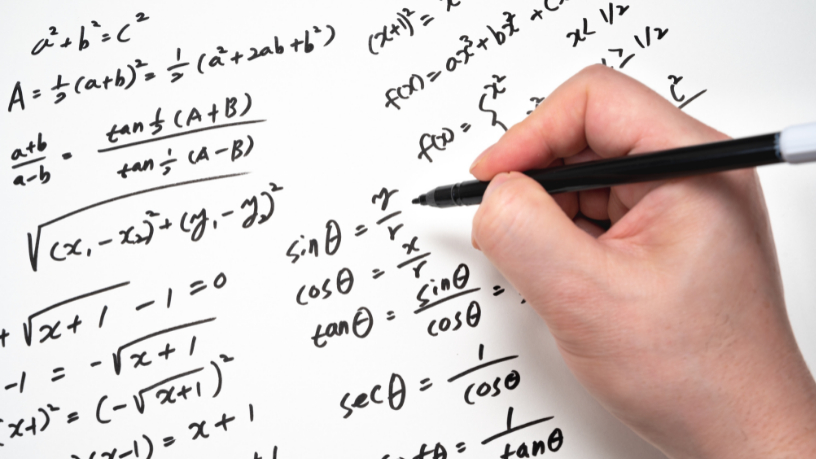 a²+b²=c²
A = ½(a+b)² = ½(a²+2ab+b²)
(a+b)/(a-b) = tan½(A+B)/tan½(A-B)
√(x₁-x₂)²+(y₁-y₂)²
+ √x+1 -1 =0
-1 = -√x+1
(x+1)² = (-√x+1)²
(x-1) = x+1
(x+1)² =
f(x) = ax³+bx²+
x< 1/2
≥ 1/2
f(x) = { x²
sinθ = y/r
cosθ = x/r
tanθ = sinθ/cosθ =
secθ = 1/cosθ
θ = 1/tanθ